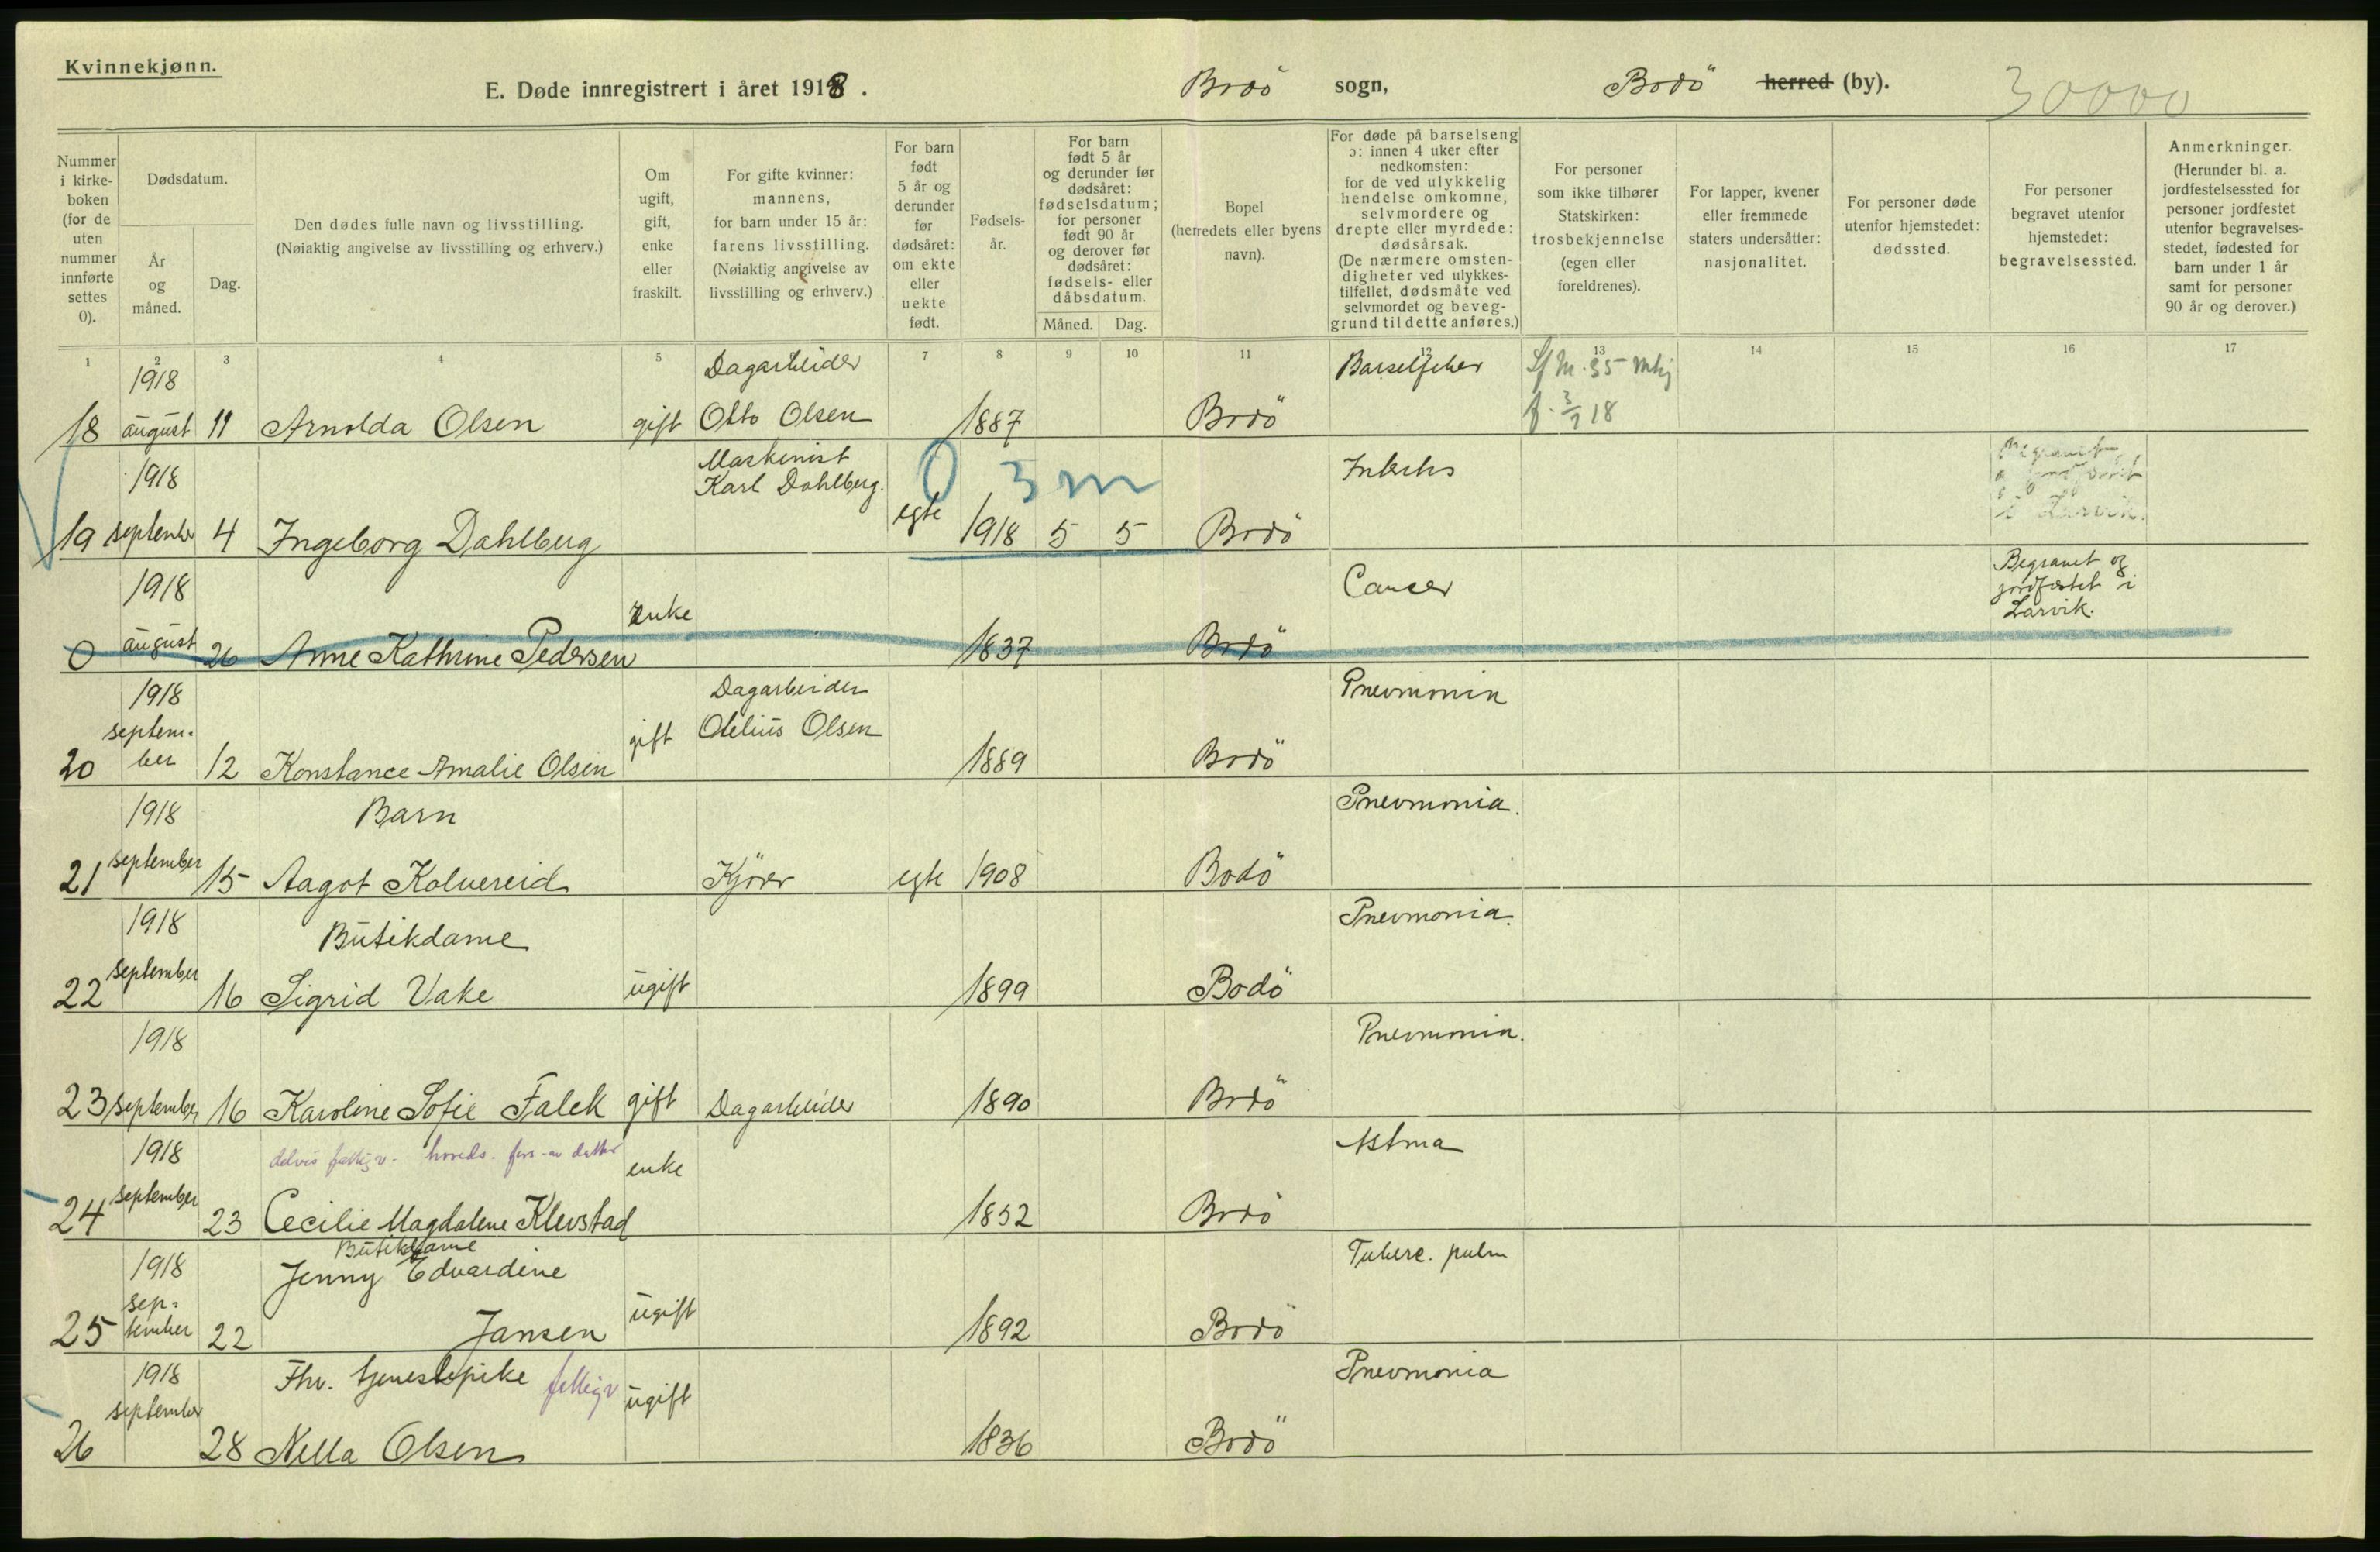 Kvinnekjønn.
E. Døde innregistrert i året 1918. Bodö sogn, Bodö herred (by). 30000
Nummer i kirke- boken (for de uten nummer innførte settes 0).
Dødsdatum.
År og måned.
Dag.
Den dødes fulle navn og livsstilling.
(Nøiaktig angivelse av livsstilling og erhverv.)
Om ugift, gift, enke eller fraskilt.
For gifte kvinner: mannens, for barn under 15 år: farens livsstilling. (Nøiaktig angivelse av livsstilling og erhverv.)
For barn født 5 år og derunder før dødsåret: om ekte eller uekte født.
Fødsels- år.
For barn født 5 år og derunder før dødsåret: fødselsdatum; for personer født 90 år og derover før dødsåret: fødsels- eller dåbsdatum.
Måned. Dag.
Bopel (herredets eller byens navn).
For døde på barselseng ɔ: innen 4 uker efter nedkomsten: for de ved ulykkelig hendelse omkomne, selvmordere og drepte eller myrdede: dødsårsak. (De nærmere omsten- digheter ved ulykkes- tilfellet, dødsmåte ved selvmordet og beveg- grund til dette anføres.)
For personer som ikke tilhører Statskirken: trosbekjennelse (egen eller foreldrenes).
For lapper, kvener eller fremmede staters undersåtter: nasjonalitet.
For personer døde utenfor hjemstedet: dødssted.
For personer begravet utenfor hjemstedet: begravelsessted.
Anmerkninger. (Herunder bl. a. jordfestelsessted for personer jordfestet utenfor begravelses- stedet, fødested for barn under 1 år samt for personer 90 år og derover.)
1 2 3 4 5 6 7 8 9 10 11 12 13 14 15 16 17
1918 Dagarbeider Barselfeber
18 august 11 Arnolda Olsen gift Otto Olsen 1887 Bodö f. 3/7 18
1918 Maskinist
Karl Dahlberg. 0 3 m Begravet og jordfæstet i Larvik.
19 september 4 Ingeborg Dahlberg egte 1918 5 5 Bodö
1918 Cancer Begravet og
jordfæstet i
Larvik.
0 august 26 Anne Kathrine Pedersen enke 1837 Bodö
1918 Dagarbeider Pnevmonia
20 septem-
ber 12 Konstance Amalie Olsen gift Otelius Olsen 1889 Bodö
1918 Barn Pnevmonia.
21 september 15 Aagot Kolvereid Kjörer egte 1908 Bodö
1918 Butikdame Pnevmonia.
22 september 16 Sigrid Vake ugift 1899 Bodö
1918 Pnevmonia.
23 september 16 Karoline Sofie Falck gift Dagarbeider 1890 Bodö
1918 delvis fattigv. hoveds. fors. av datter Astma
24 september 23 Cecilie Magdalene Klevstad enke 1852 Bodö
Butikdame
1918 Jenny Edvardine Tuberc. pulm
25 sep-
tember 22 Jansen ugift 1892 Bodö
1918 Fhv. tjenestepike fattigv Pnevmonia
26 september 28 Nella Olsen ugift 1836 Bodö